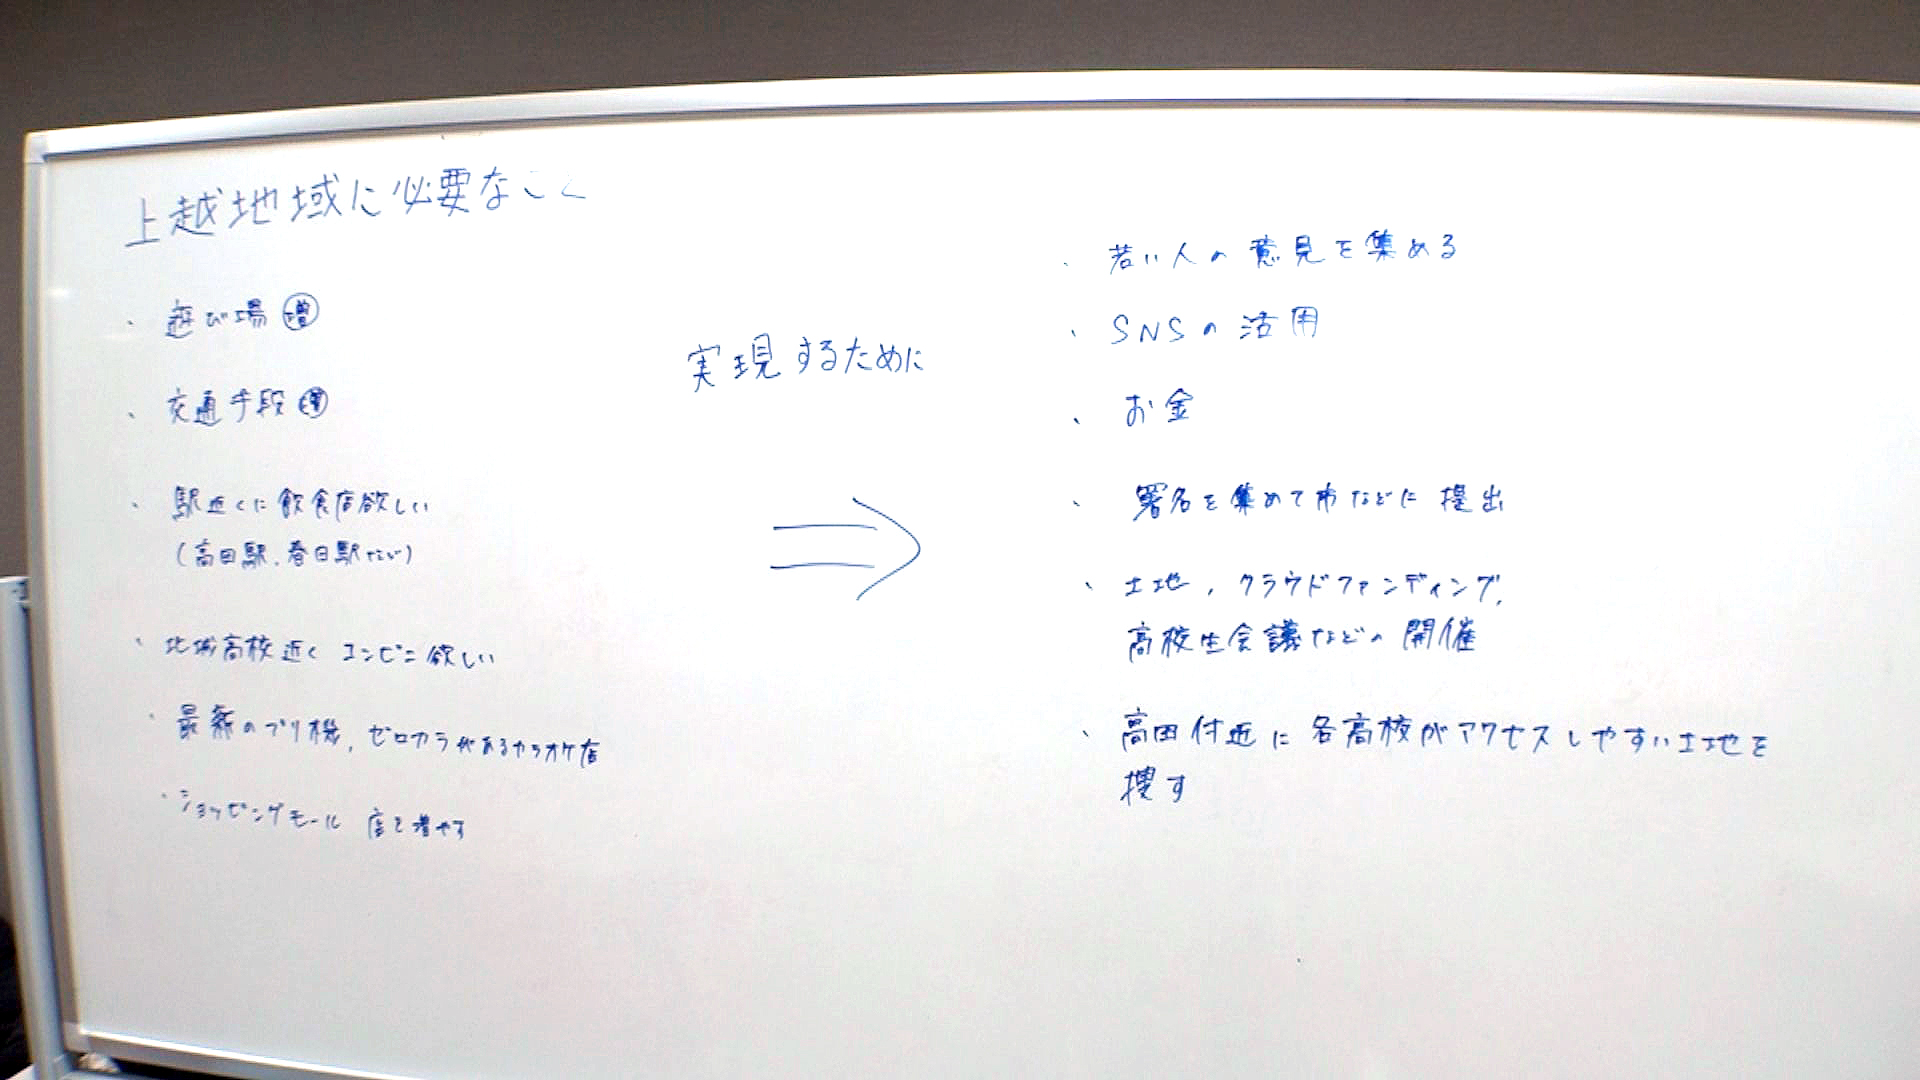 上越地域に必要なこと
・遊び場 増
・交通手段 増
・駅近くに飲食店欲しい
(高田駅、春日駅など)
・北城高校近く コンビニ欲しい
・最新のプリ機, ゼロカラがあるカラオケ店
・ショッピングモール 店を増やす
実現するために
⇒
・若い人の意見を集める
・SNSの活用
・お金
・署名を集めて市などに提出
・土地, クラウドファンディング,
高校生会議などの開催
・高田付近に各高校がアクセスしやすい土地を
捜す